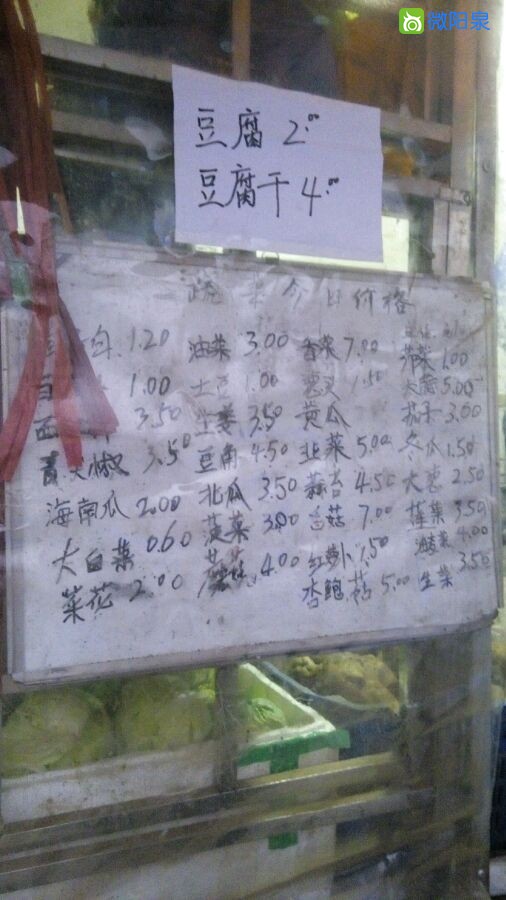 微阳泉
豆腐 2.00
豆腐干 4.00
蔬菜今日价格
1.20 油菜 3.00 香菜 7.00
1.00 土豆 1.00 1.50 大蒜 5.00
西 3.50 生姜 3.50 黄瓜 茄子 3.00
青尖椒 3.50 豆角 4.50 韭菜 5.00 冬瓜 1.50
海南瓜 2.00 北瓜 3.50 蒜台 4.50 大葱 2.50
大白菜 0.60 菠菜 3.00 7.00 蓬菜 3.50
菜花 2.00 蘑菇 4.00 红萝卜 1.50 油麦菜 4.00
杏鲍菇 5.00 生菜 3.50